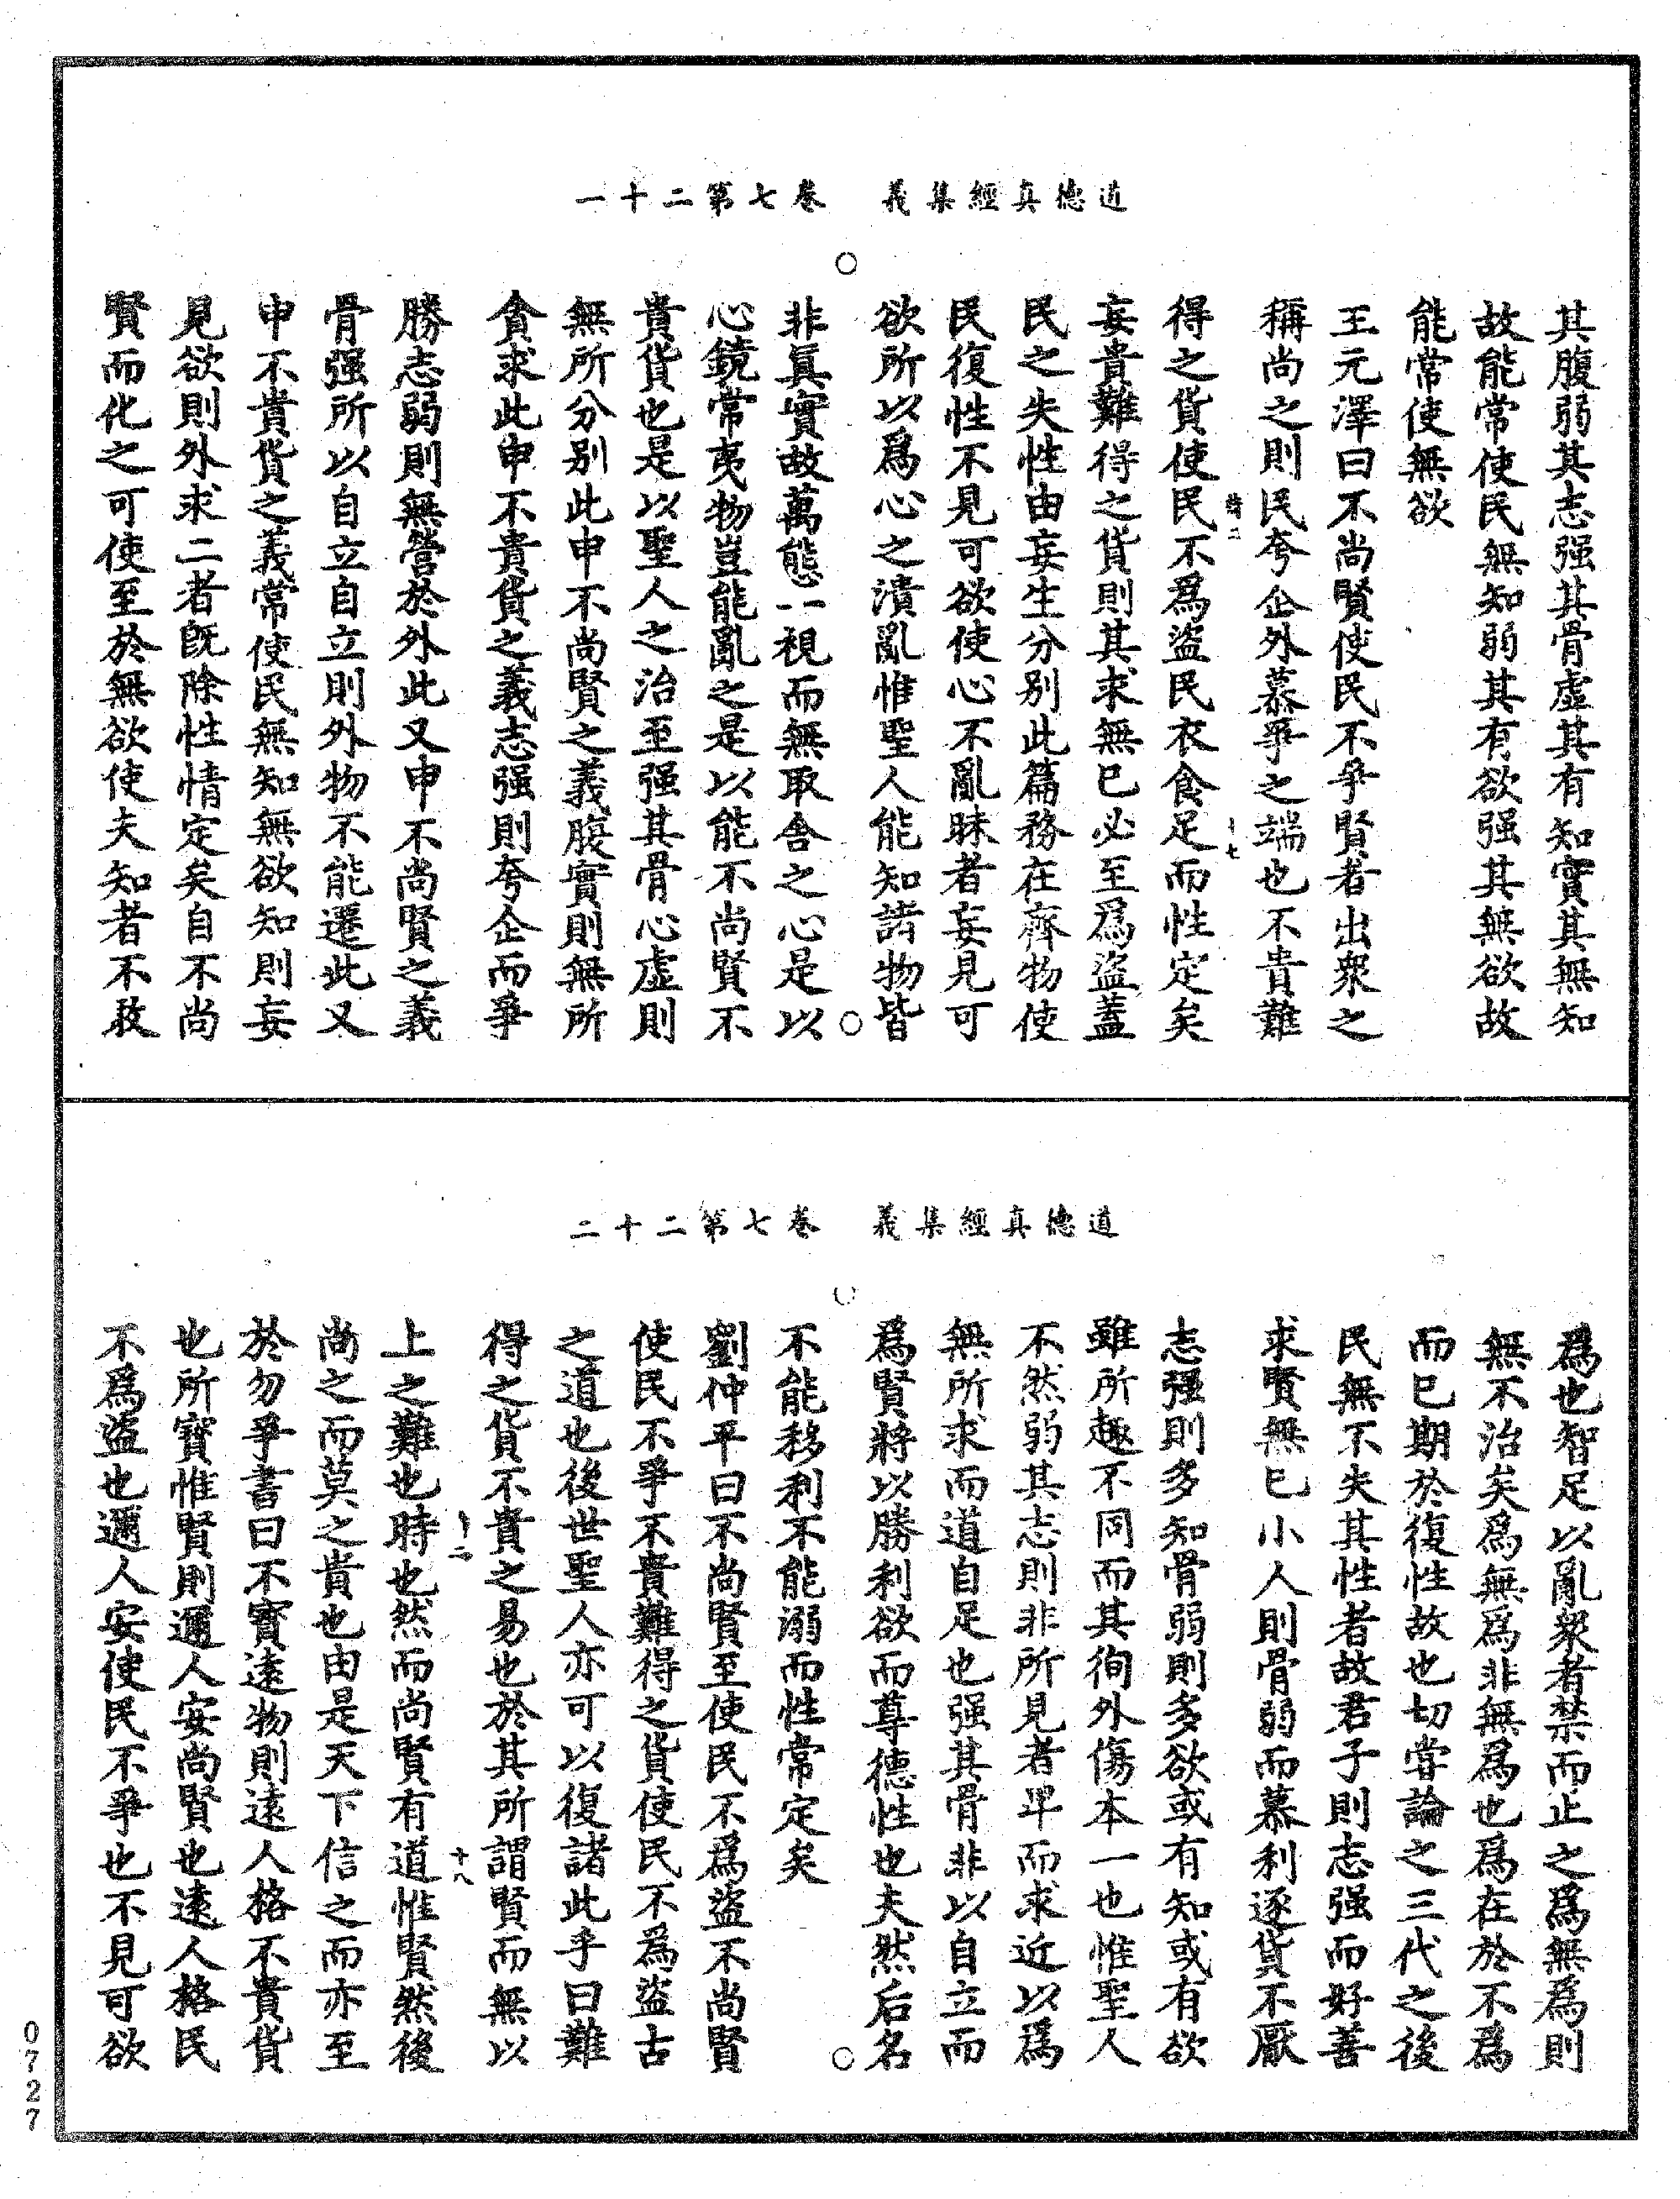 道德真經集義　卷七第二十一
其腹弱其志强其骨虛其有知實其無知
故能常使民無知弱其有欲强其無欲故
能常使無欲
王元澤曰不尚賢使民不爭賢者出衆之
稱尚之則民夸企外慕爭之端也不貴難
得之貨使民不爲盜民衣食足而性定矣
妄貴難得之貨則其求無已必至爲盜蓋
民之失性由妄生分别此篇務在齊物使
民復性不見可欲使心不亂昧者妄見可
欲所以爲心之潰亂惟聖人能知諸物皆
非眞實故萬態一視而無取舍之心是以
心鏡常夷物豈能亂之是以能不尚賢不
貴貨也是以聖人之治至强其骨心虛則
無所分别此申不尚賢之義腹實則無所
貪求此申不貴貨之義志强則夸企而爭
勝志弱則無營於外此又申不尚賢之義
骨强所以自立自立則外物不能遷此又
申不貴貨之義常使民無知無欲知則妄
見欲則外求二者旣除性情定矣自不尚
賢而化之可使至於無欲使夫知者不敢
十七
道德真經集義　卷七第二十二
爲也智足以亂衆者禁而止之爲無爲則
無不治矣爲無爲非無爲也爲在於不爲
而已期於復性故也切嘗論之三代之後
民無不失其性者故君子則志强而好善
求賢無已小人則骨弱而慕利逐貨不厭
志强則多知骨弱則多欲或有知或有欲
雖所趣不同而其徇外傷本一也惟聖人
不然弱其志則非所見者卑而求近以爲
無所求而道自足也强其骨非以自立而
爲賢將以勝利欲而尊德性也夫然后名
不能移利不能溺而性常定矣
劉仲平曰不尚賢至使民不爲盜不尚賢
使民不爭不貴難得之貨使民不爲盜古
之道也後世聖人亦可以復諸此乎曰難
得之貨不貴之易也於其所謂賢而無以
上之難也時也然而尚賢有道惟賢然後
尚之而莫之貴也由是天下信之而亦至
於勿爭書曰不寳遠物則遠人格不貴貨
也所寳惟賢則邇人安尚賢也遠人格民
不爲盜也邇人安使民不爭也不見可欲
十八
0727